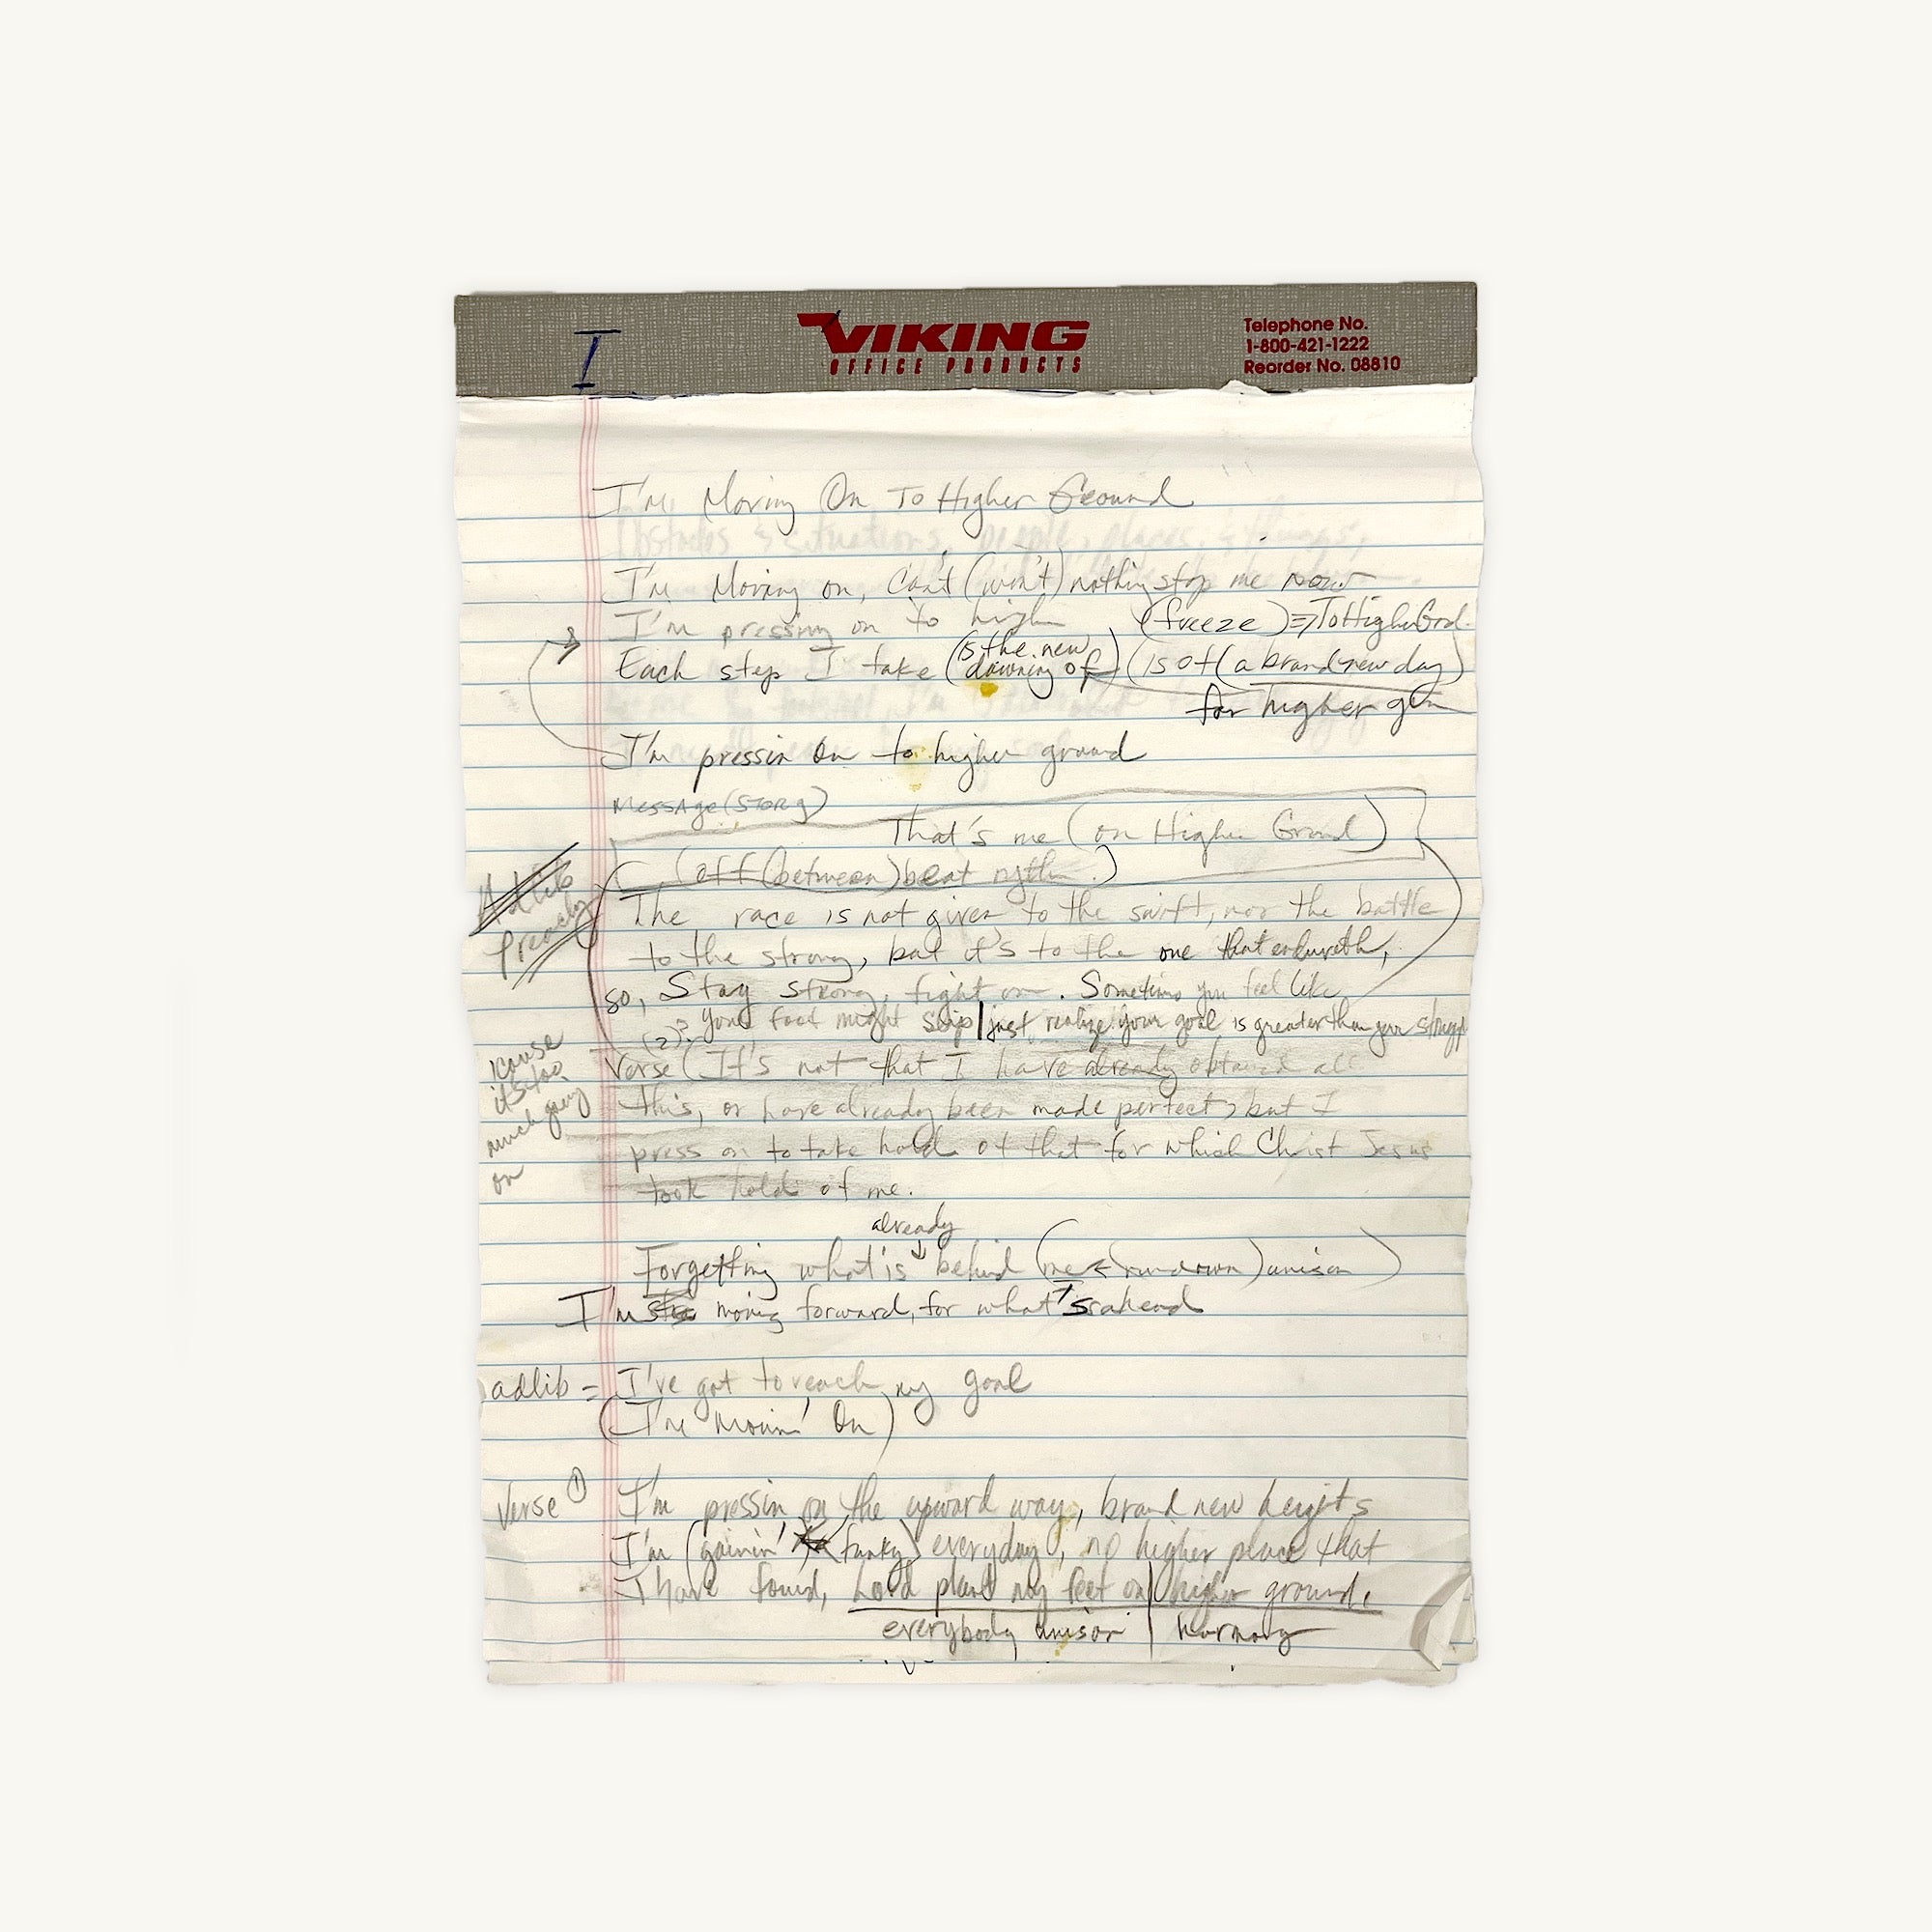 I
VIKING
OFFICE PRODUCTS
Telephone No.
1-800-421-1222
Reorder No. 08810
I'm Moving On To Higher Ground
Obstacles & situations, people, places, & things,
I'm Moving on, Can't (won't) nothing stop me now
I'm pressing on to high (freeze) => To Higher Grd.
Each step I take (is the new dawning of) (is of (a brand new day)
for higher
I'm pressin On to higher ground
Message (Story)
That's me (on Higher Ground)
(off (between) beat rythm.)
Adlib
preachy
The race is not given to the swift, nor the battle
to the strong, but it's to the one that endureth,
so, Stay strong, fight on. Sometimes you feel like
your foot might slip | just realize your goal is greater than your
'cause
it's too
much going
on
(2)
Verse (It's not that I have already obtained all
this, or have already been made perfect, but I
press on to take hold of that for which Christ Jesus
took hold of me.
already
Forgetting what is ↓ behind (me ← (rundown) unison)
I'm moving forward, for what's ahead
adlib = I've got to reach my goal
(I'm movin' On)
Verse ① I'm pressin on the upward way, brand new heyits
I'm (gainin' (funky) everyday, no higher place that
I have found, Lord plant my feet on | higher ground.
everybody unison | harmony